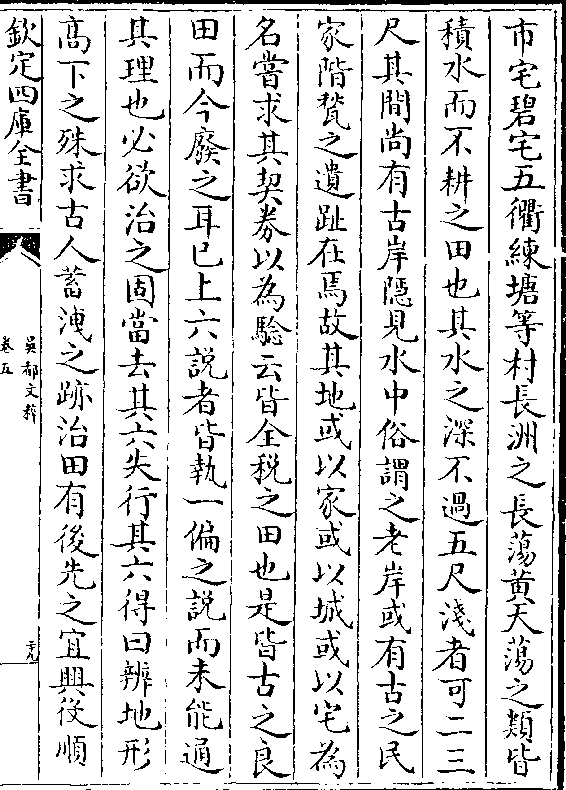 市宅碧宅五衢練塘等村長洲之長蕩黄天蕩之類皆
積水而不耕之田也其水之深不過五尺淺者可二三
尺其間尚有古岸隱見水中俗謂之老岸或有古之民
家階甃之遺趾在焉故其地或以家或以城或以宅為
名嘗求其契券以為驗云皆全税之田也是皆古之良
田而今廢之耳已上六説者皆執一偏之説而未能通
其理也必欲治之固當去其六失行其六得曰辨地形
髙下之殊求古人蓄洩之跡治田有後先之宜興役順
欽定四庫全書
吳都文粹
卷五
三九